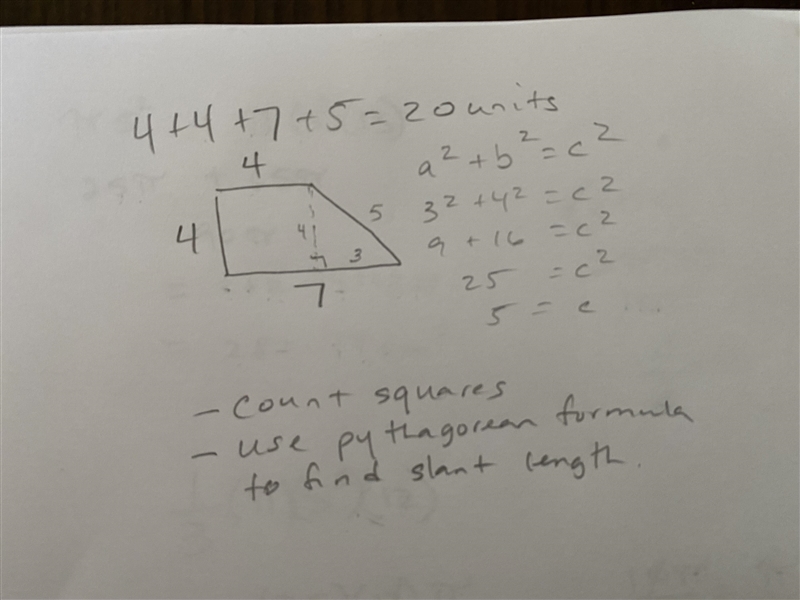 4+4+7+5=20 units
a² + b² = c²
3² + 4² = c²
9 + 16 = c²
25 = c²
5 = c
4
4
5
4
3
7
- count squares
- use pythagorean formula
to find slant length.